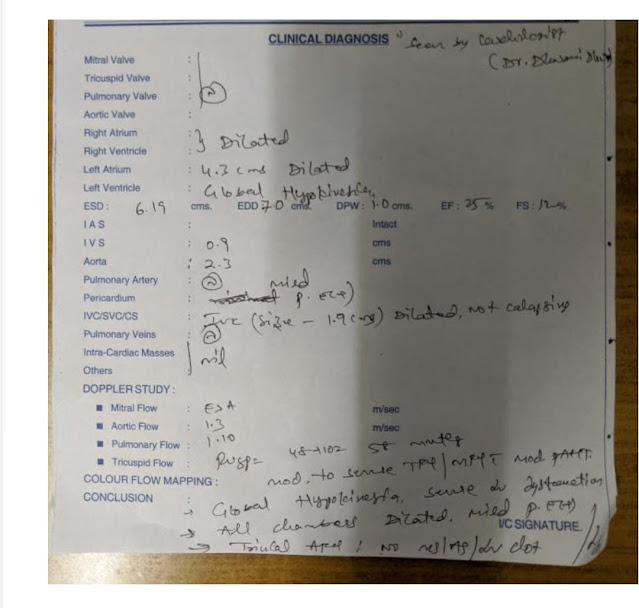 CLINICAL DIAGNOSIS Scan by Cardiologist
(Dr.
Mitral Valve :
Tricuspid Valve :
Pulmonary Valve : N
Aortic Valve :
Right Atrium : } Dilated
Right Ventricle :
Left Atrium : 4.3 cms Dilated
Left Ventricle : Global Hypokinesia
ESD : 6.19 cms. EDD 7.0 cms. DPW : 1.0 cms. EF : % FS : 12 %
I A S : Intact
I V S : 0.9 cms
Aorta : 2.3 cms
Pulmonary Artery : N
Pericardium : mild P. E(+)
IVC/SVC/CS : IVC (Size - 1.9 cms) Dilated, not
Pulmonary Veins : N
Intra-Cardiac Masses nil
Others
DOPPLER STUDY :
Mitral Flow : E>A m/sec
Aortic Flow : 1.3 m/sec
Pulmonary Flow : 1.10
Tricuspid Flow : RVSP= 48+10= 58 mmHg
COLOUR FLOW MAPPING : mod. to TR+/ mod PAHT.
CONCLUSION : → Global Hypokinesia, LV dysfunction
→ All chambers Dilated, mild P. E(+)
I/C SIGNATURE.
→ ; NO /LV clot